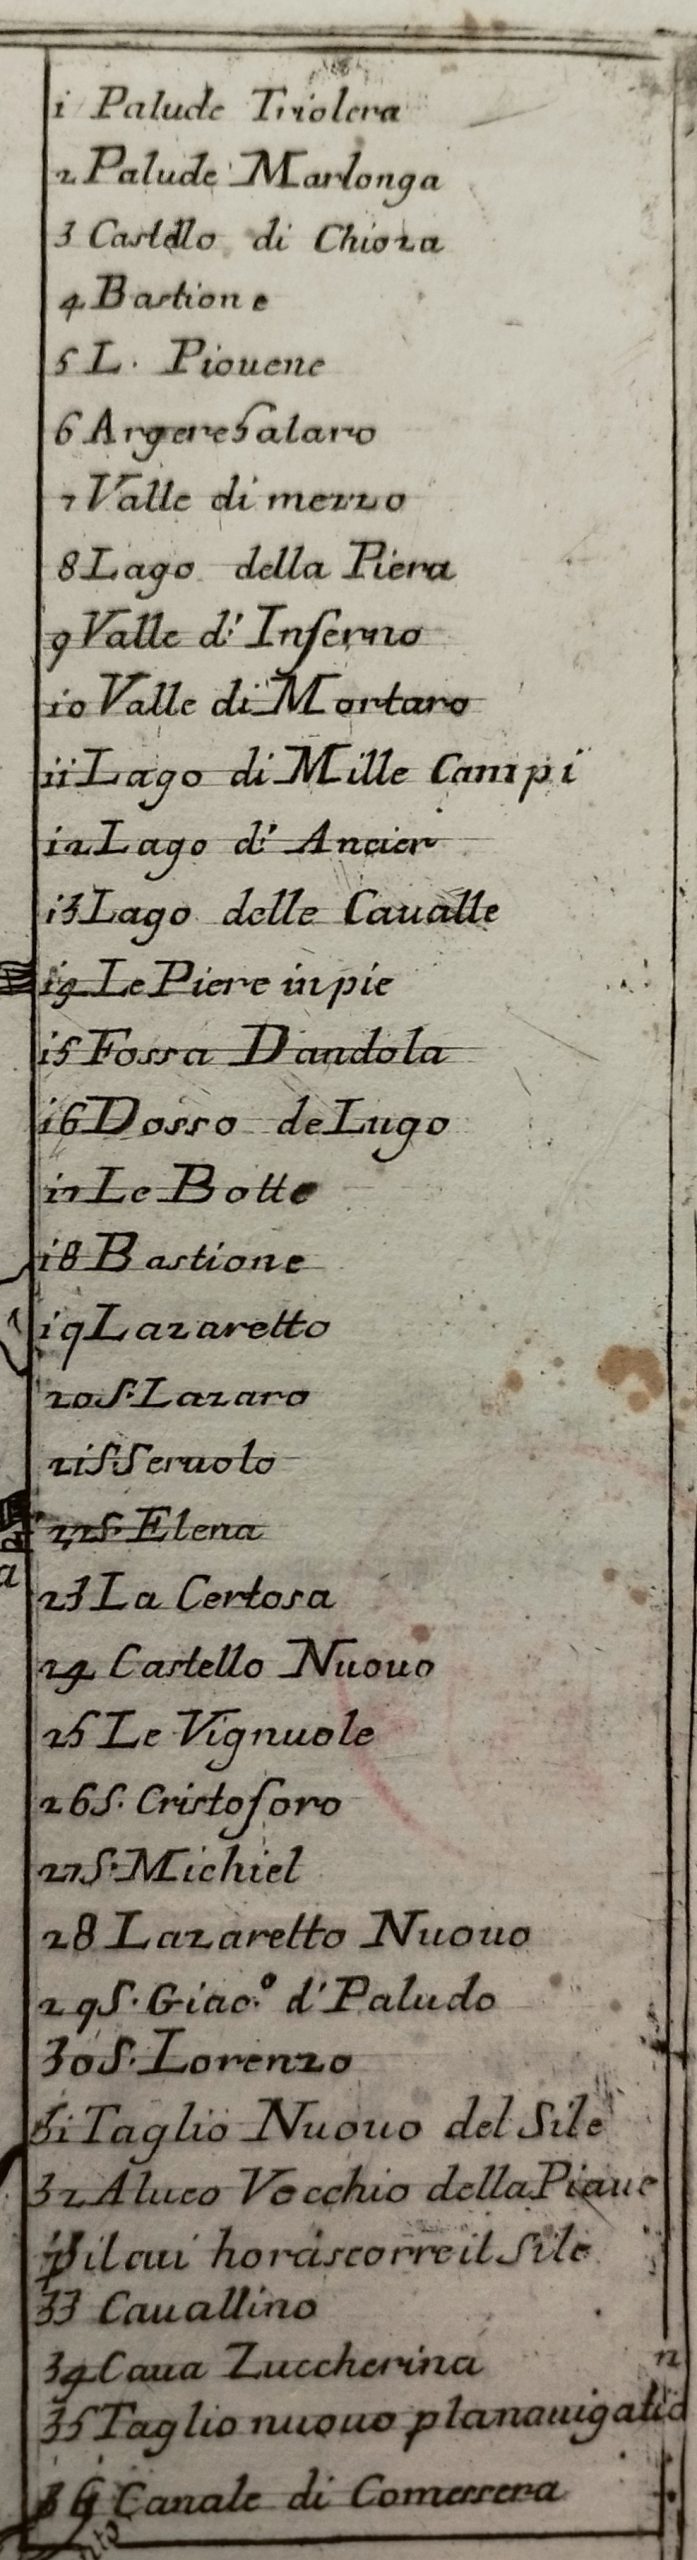 1 Palude Triolera
2 Palude Marlonga
3 Castello di Chioza
4 Bastione
5 L. Piouene
6 Argere Salaro
7 Valle di mezzo
8 Lago della Piera
9 Valle d'Inferno
10 Valle di Mortaro
11 Lago di Mille Campi
12 Lago d' Ancier
13 Lago delle Caualle
14 Le Piere in pie
15 Fossa Dandola
16 Dosso de Lugo
17 Le Botte
18 Bastione
19 Lazaretto
20 S. Lazaro
21 S Seruolo
22 S. Elena
23 La Certosa
24 Castello Nuouo
25 Le Vignuole
26 S. Cristoforo
27 S. Michiel
28 Lazaretto Nuouo
29 S. Giac.º d'Paludo
30 S. Lorenzo
31 Taglio Nuouo del Sile
32 Alueo Vecchio della Piaue
ꝑ il cui hora scorre il Sile
33 Cauallino
34 Caua Zuccherina
35 Taglio nuouo ꝑ la nauigatio
36 Canale di Comessera